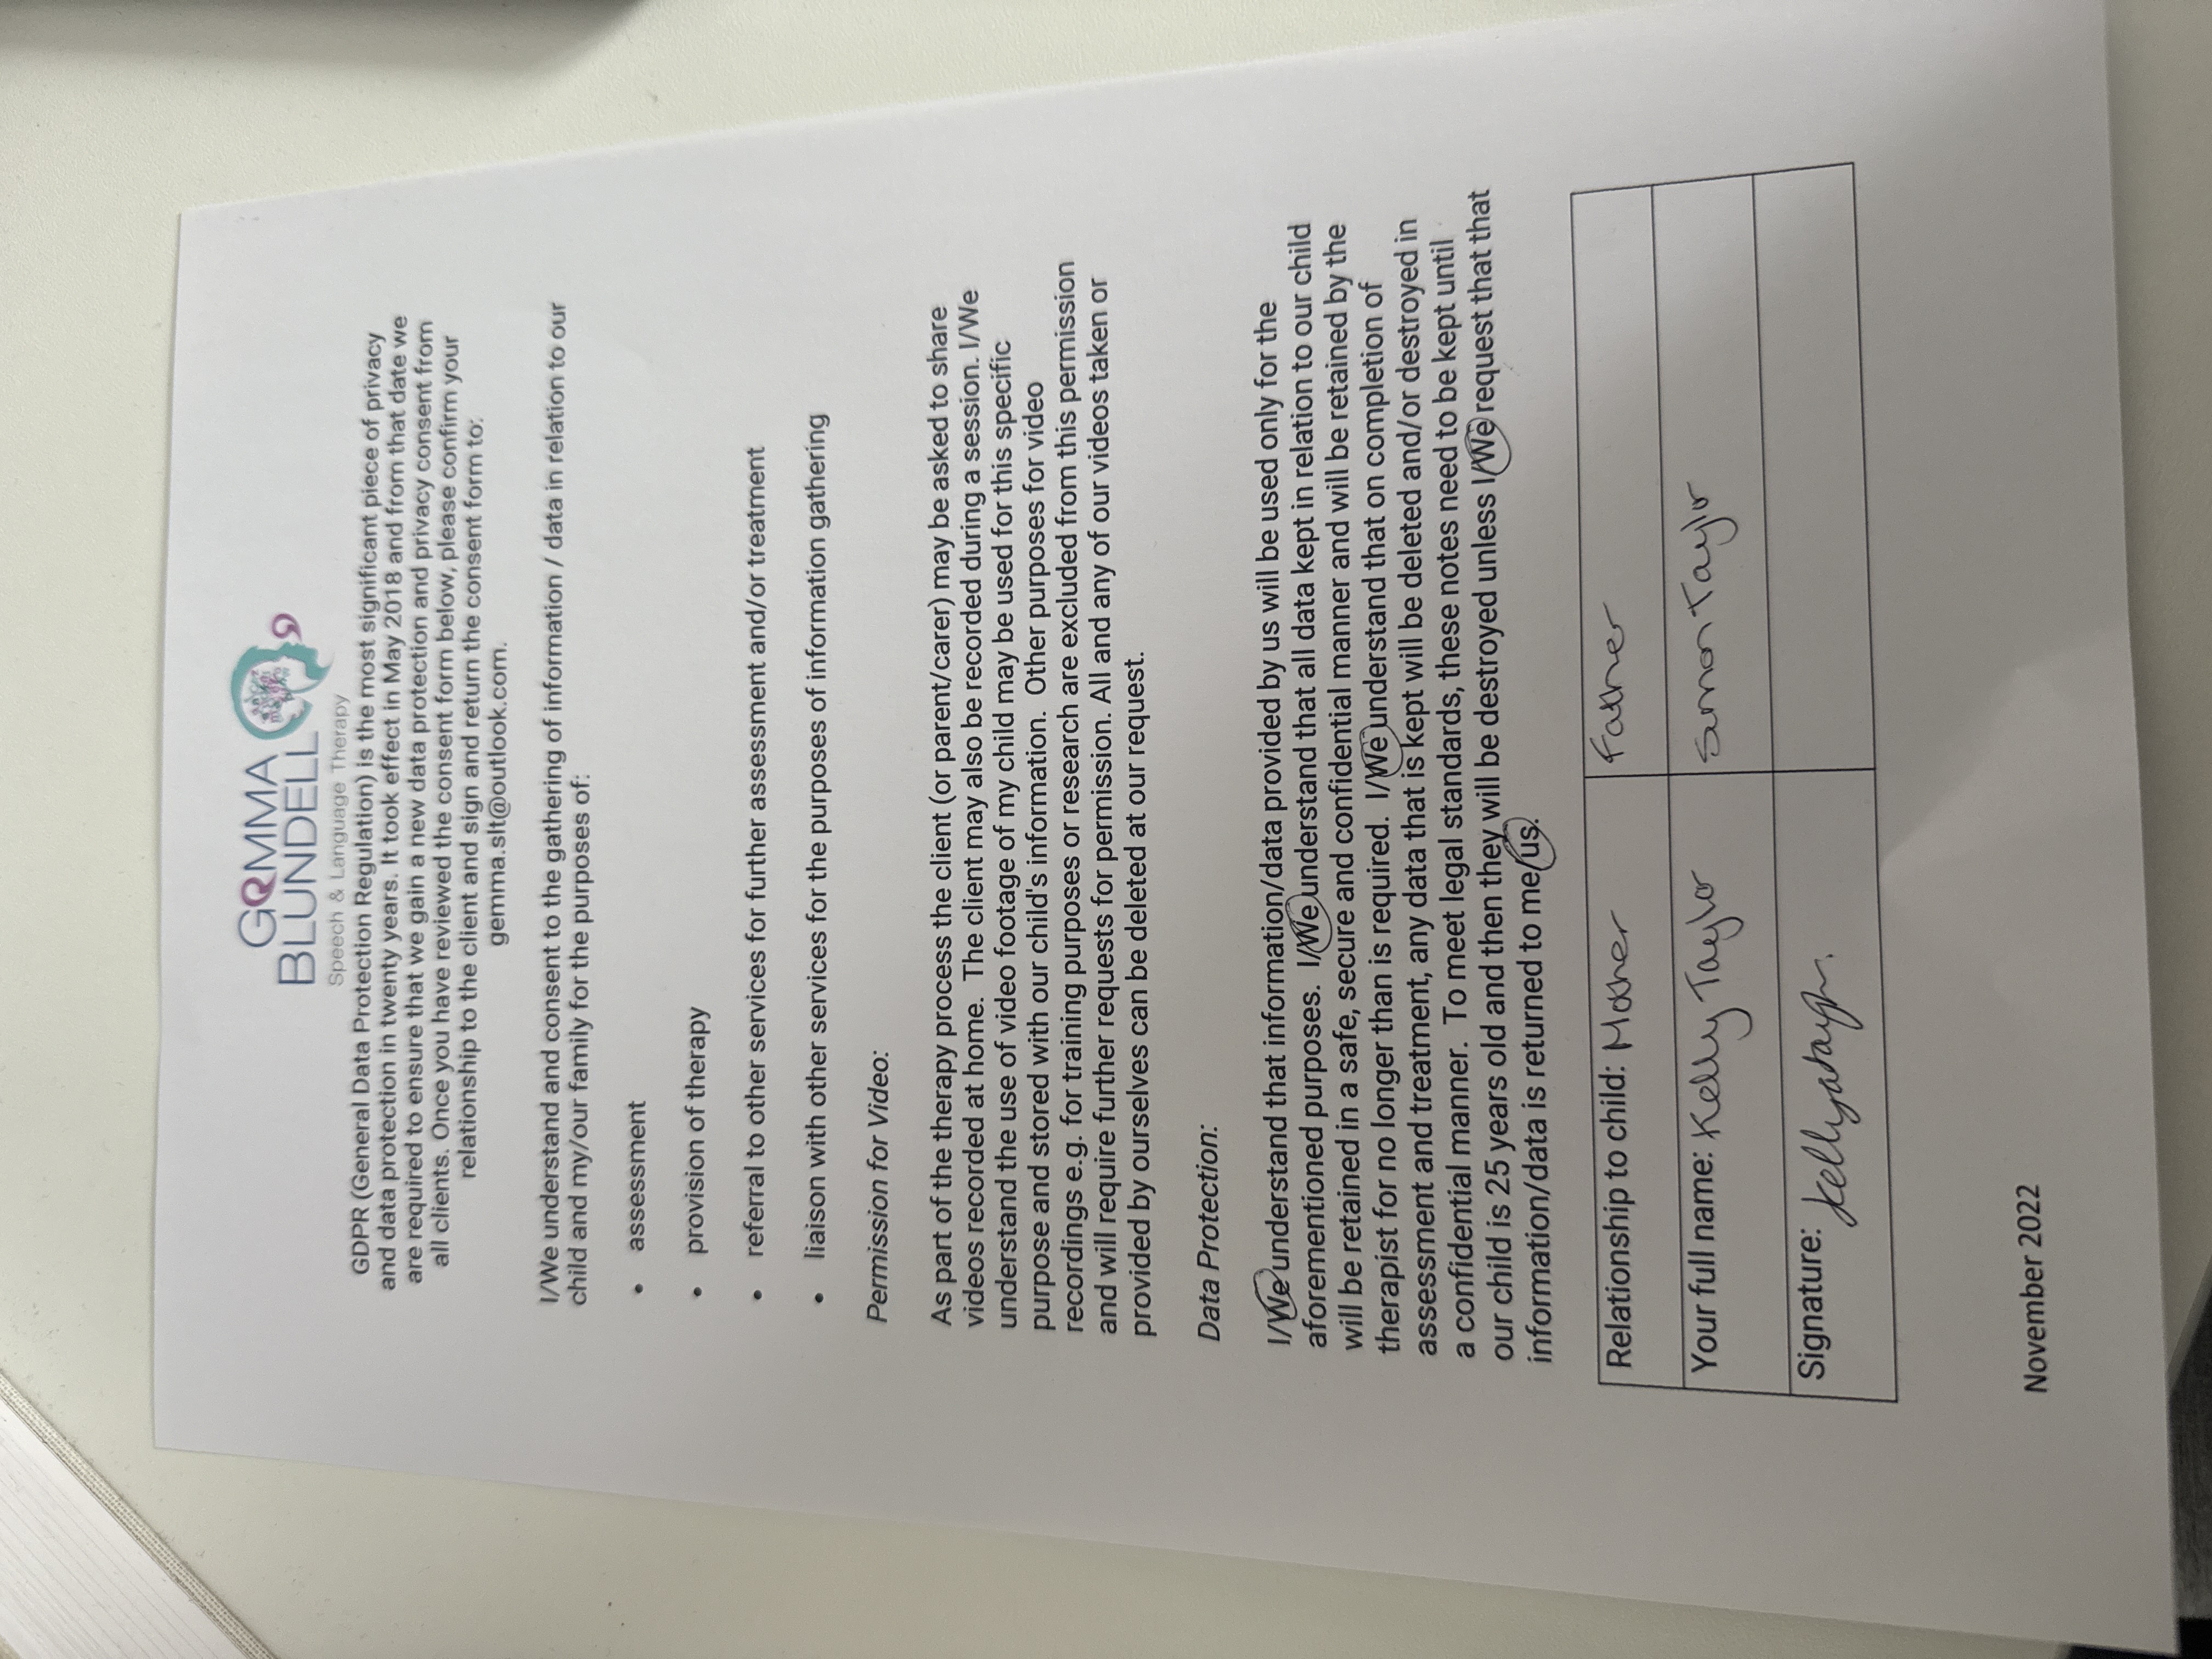 GEMMA
BLUNDELL
Speech & Language Therapy
GDPR (General Data Protection Regulation) is the most significant piece of privacy
and data protection in twenty years. It took effect in May 2018 and from that date we
are required to ensure that we gain a new data protection and privacy consent from
all clients. Once you have reviewed the consent form below, please confirm your
relationship to the client and sign and return the consent form to:
gemma.slt@outlook.com.
I/We understand and consent to the gathering of information / data in relation to our
child and my/our family for the purposes of:
• assessment
• provision of therapy
• referral to other services for further assessment and/or treatment
• liaison with other services for the purposes of information gathering
Permission for Video:
As part of the therapy process the client (or parent/carer) may be asked to share
videos recorded at home. The client may also be recorded during a session. I/We
understand the use of video footage of my child may be used for this specific
purpose and stored with our child's information. Other purposes for video
recordings e.g. for training purposes or research are excluded from this permission
and will require further requests for permission. All and any of our videos taken or
provided by ourselves can be deleted at our request.
Data Protection:
I/We understand that information/data provided by us will be used only for the
aforementioned purposes. I/We understand that all data kept in relation to our child
will be retained in a safe, secure and confidential manner and will be retained by the
therapist for no longer than is required. I/We understand that on completion of
assessment and treatment, any data that is kept will be deleted and/or destroyed in
a confidential manner. To meet legal standards, these notes need to be kept until
our child is 25 years old and then they will be destroyed unless I/We request that that
information/data is returned to me/us.
Relationship to child: Mother Father
Your full name: Kelly Taylor Simon Taylor
Signature:
November 2022